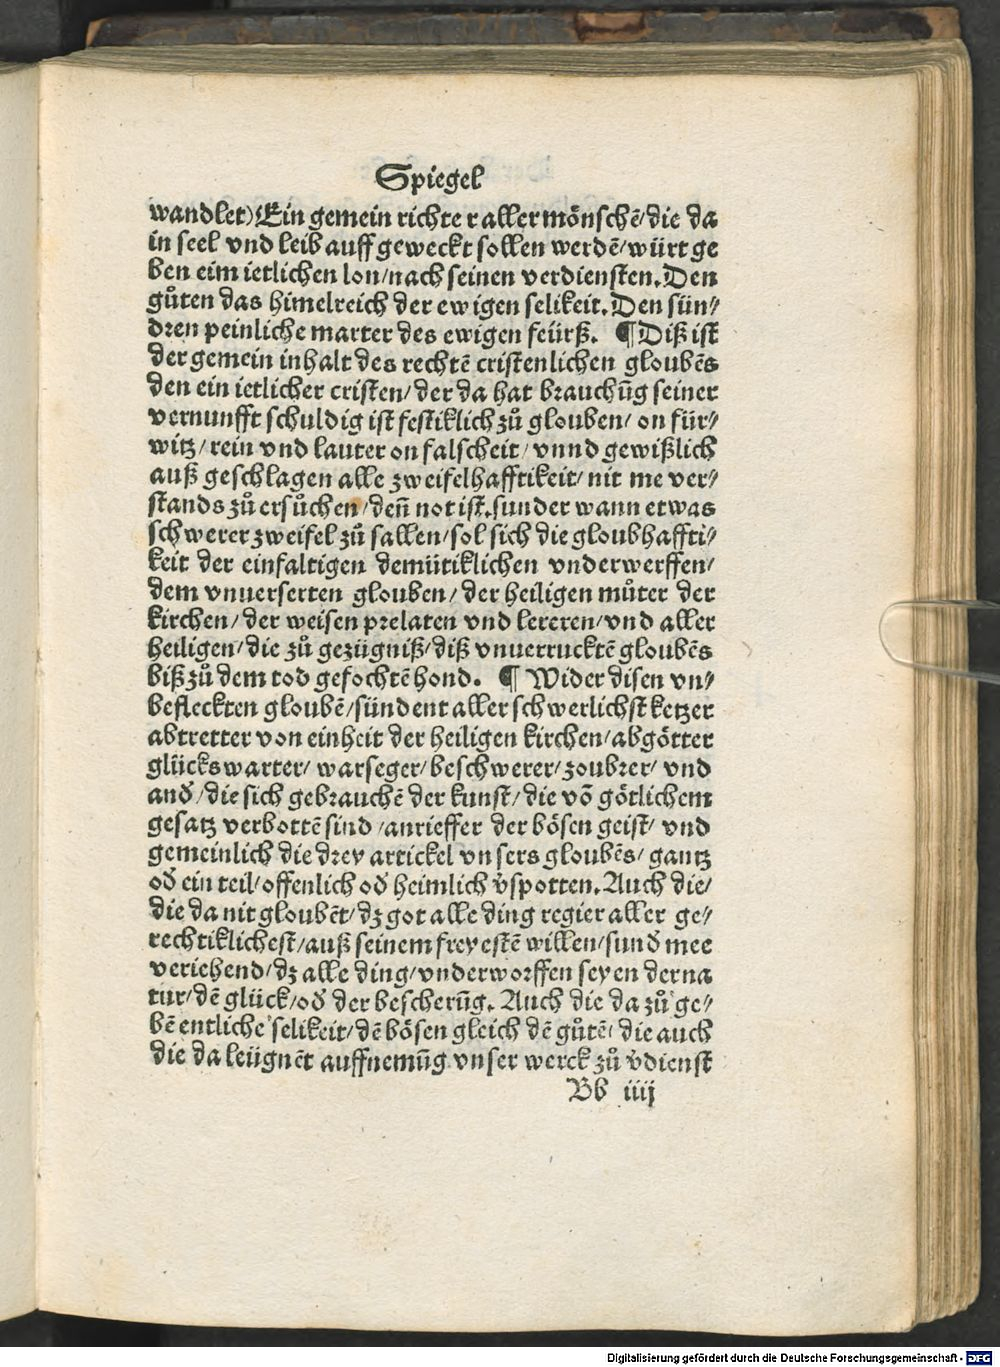 Spiegel
wandlet) Ein gemein richte r aller mönschē/ die da
in seel vnd leib auff geweckt sollen werdē/ würt ge
ben eim ietlichen lon/ nach seinen verdiensten. Den
gůten das himelreich der ewigen selikeit. Den sün⸗
dren peinliche marter des ewigen feürß. ¶ Diß ist
der gemein inhalt des rechtē cristenlichen gloubēs
den ein ietlicher cristen/ der da hat brauchūg seiner
vernunfft schuldig ist festiklich zů glouben/ on für⸗
witz/ rein vnd lauter on falscheit/ vnnd gewißlich
auß geschlagen alle zweifelhafftikeit/ nit me ver⸗
stands zů ersůchen/ deñ not ist. sunder wann etwas
schwerer zweifel zů fallen/ sol sich die gloubhaffti⸗
keit der einfaltigen demütiklichen vnderwerffen/
dem vnuerserten glouben/ der heiligen můter der
kirchen/ der weisen prelaten vnd lereren/ vnd aller
heiligen/ die zů gezügniß/ diß vnuerrucktē gloubēs
biß zů dem tod gefochtē hond. ¶ Wider disen vn⸗
befleckten gloubē/ sündent aller schwerlichst ketzer
abtretter von einheit der heiligen kirchen/ abgötter
glücks warter/ warseger/ beschwerer/ zoubrer/ vnd
and̕/ die sich gebrauchē der kunst/ die vō götlichem
gesatz verbottē sind/ anrieffer der bösen geist/ vnd
gemeinlich die drey artickel vnsers gloubēs/ gantz
od̕ ein teil/ offenlich od̕ heimlich v̕spotten. Auch die/
die da nit gloubēt/ dz got alle ding regier aller ge⸗
rechtiklichest/ auß seinem freyestē willen/ sund̕ mee
veriehend/ dz alle ding/ vnderworffen seyen der na
tur/ dē glück/ od̕ der bescherūg. Auch die da zů ge⸗
bē entliche selikeit/ dē bösen gleich dē gůtē/ die auch
die da leügnēt auffnemūg vnser werck zů v̕dienst
Bb iiij
Digitalisierung gefördert durch die Deutsche Forschungsgemeinschaft - DFG